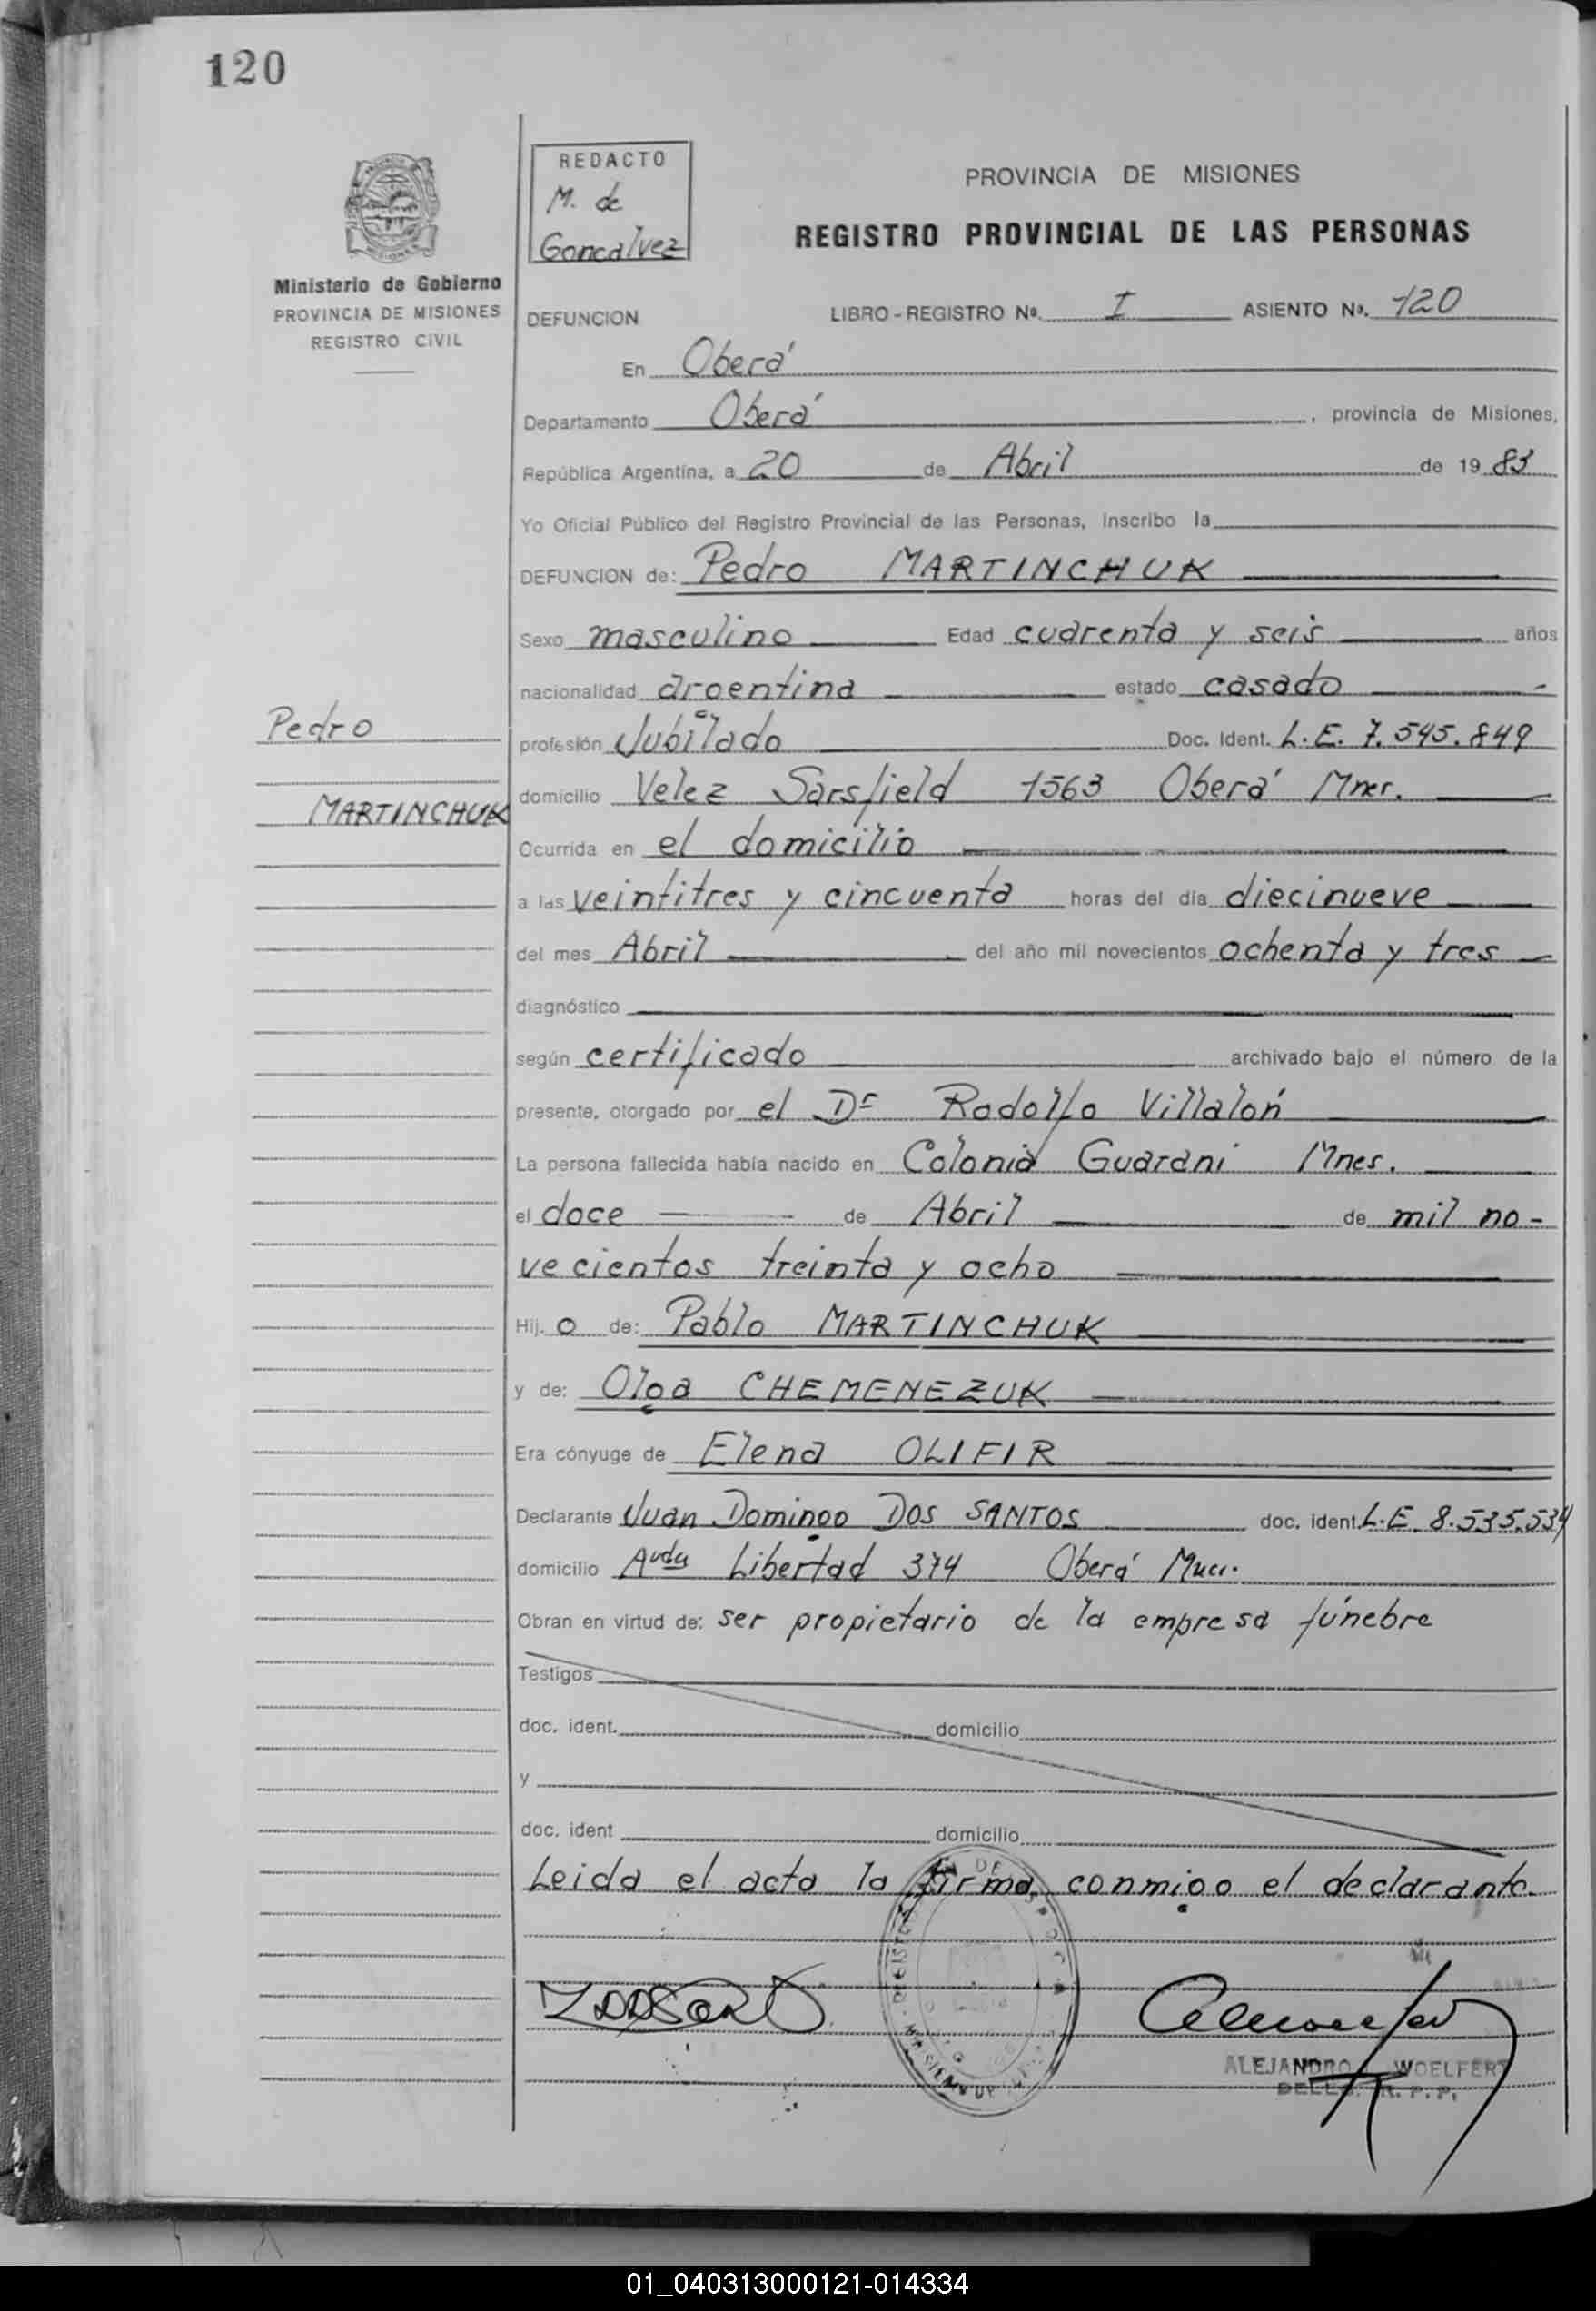 120
REDACTO
M. de
Goncalvez
PROVINCIA DE MISIONES
REGISTRO PROVINCIAL DE LAS PERSONAS
Ministerio de Gobierno
PROVINCIA DE MISIONES
REGISTRO CIVIL
DEFUNCION LIBRO - REGISTRO Nº. I ASIENTO Nº. 120
En Oberá
Departamento Oberá , provincia de Misiones,
República Argentina, a 20 de Abril de 19 83
Yo Oficial Público del Registro Provincial de las Personas, inscribo la
DEFUNCION de: Pedro MARTINCHUK
Sexo masculino Edad cuarenta y seis años
nacionalidad argentina estado casado
Pedro
MARTINCHUK
profesión Jubilado Doc. Ident. L.E. 7.545.849
domicilio Velez Sarsfield 1563 Oberá Mnes.
Ocurrida en el domicilio
a las veintitres y cincuenta horas del día diecinueve
del mes Abril del año mil novecientos ochenta y tres
diagnóstico
según certificado archivado bajo el número de la
presente, otorgado por el Dr Rodolfo Villalón
La persona fallecida había nacido en Colonia Guarani Mnes.
el doce de Abril de mil no-
vecientos treinta y ocho
Hij. o de: Pablo MARTINCHUK
y de: Olga CHEMENEZUK
Era cónyuge de Elena OLIFIR
Declarante Juan Domingo DOS SANTOS doc. ident. L.E. 8.535.534
domicilio Avda Libertad 374 Oberá
Obran en virtud de: ser propietario de la empresa fúnebre
Testigos
doc. ident. domicilio
y
doc. ident domicilio
Leida el acta la firma conmigo el declarante.
ALEJANDRO WOELFERT
01_040313000121-014334